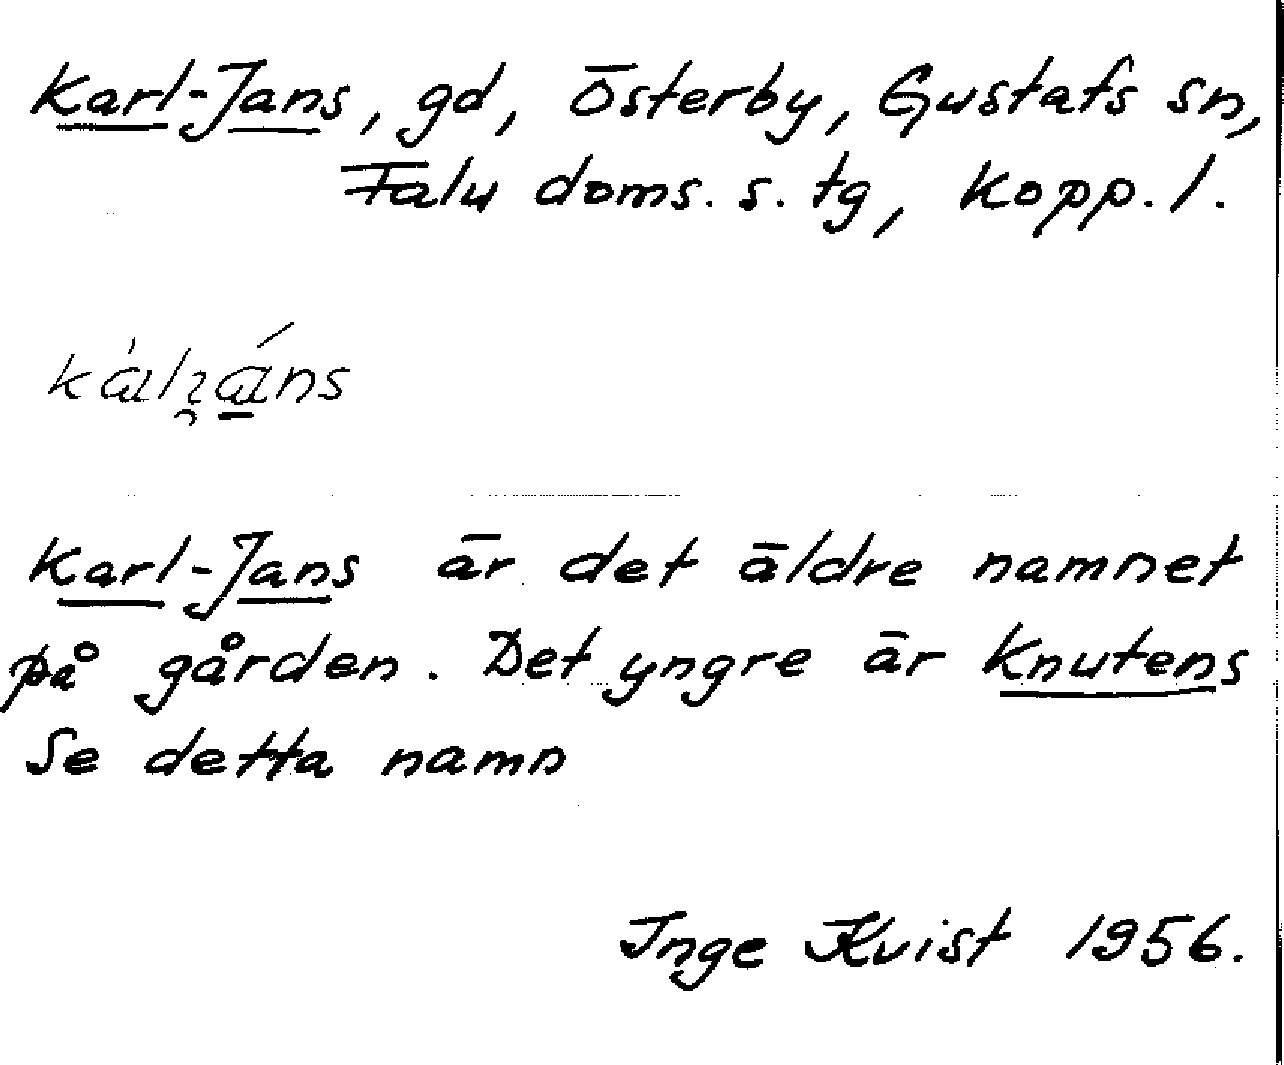 Karl-Jans, gd, Österby, Gustafs sn,
Falu doms. s. tg, Kopp. l.
Karl-Jans är det äldre namnet
på gården. Det yngre är Knutens
Se detta namn
Inge Kvist 1956.